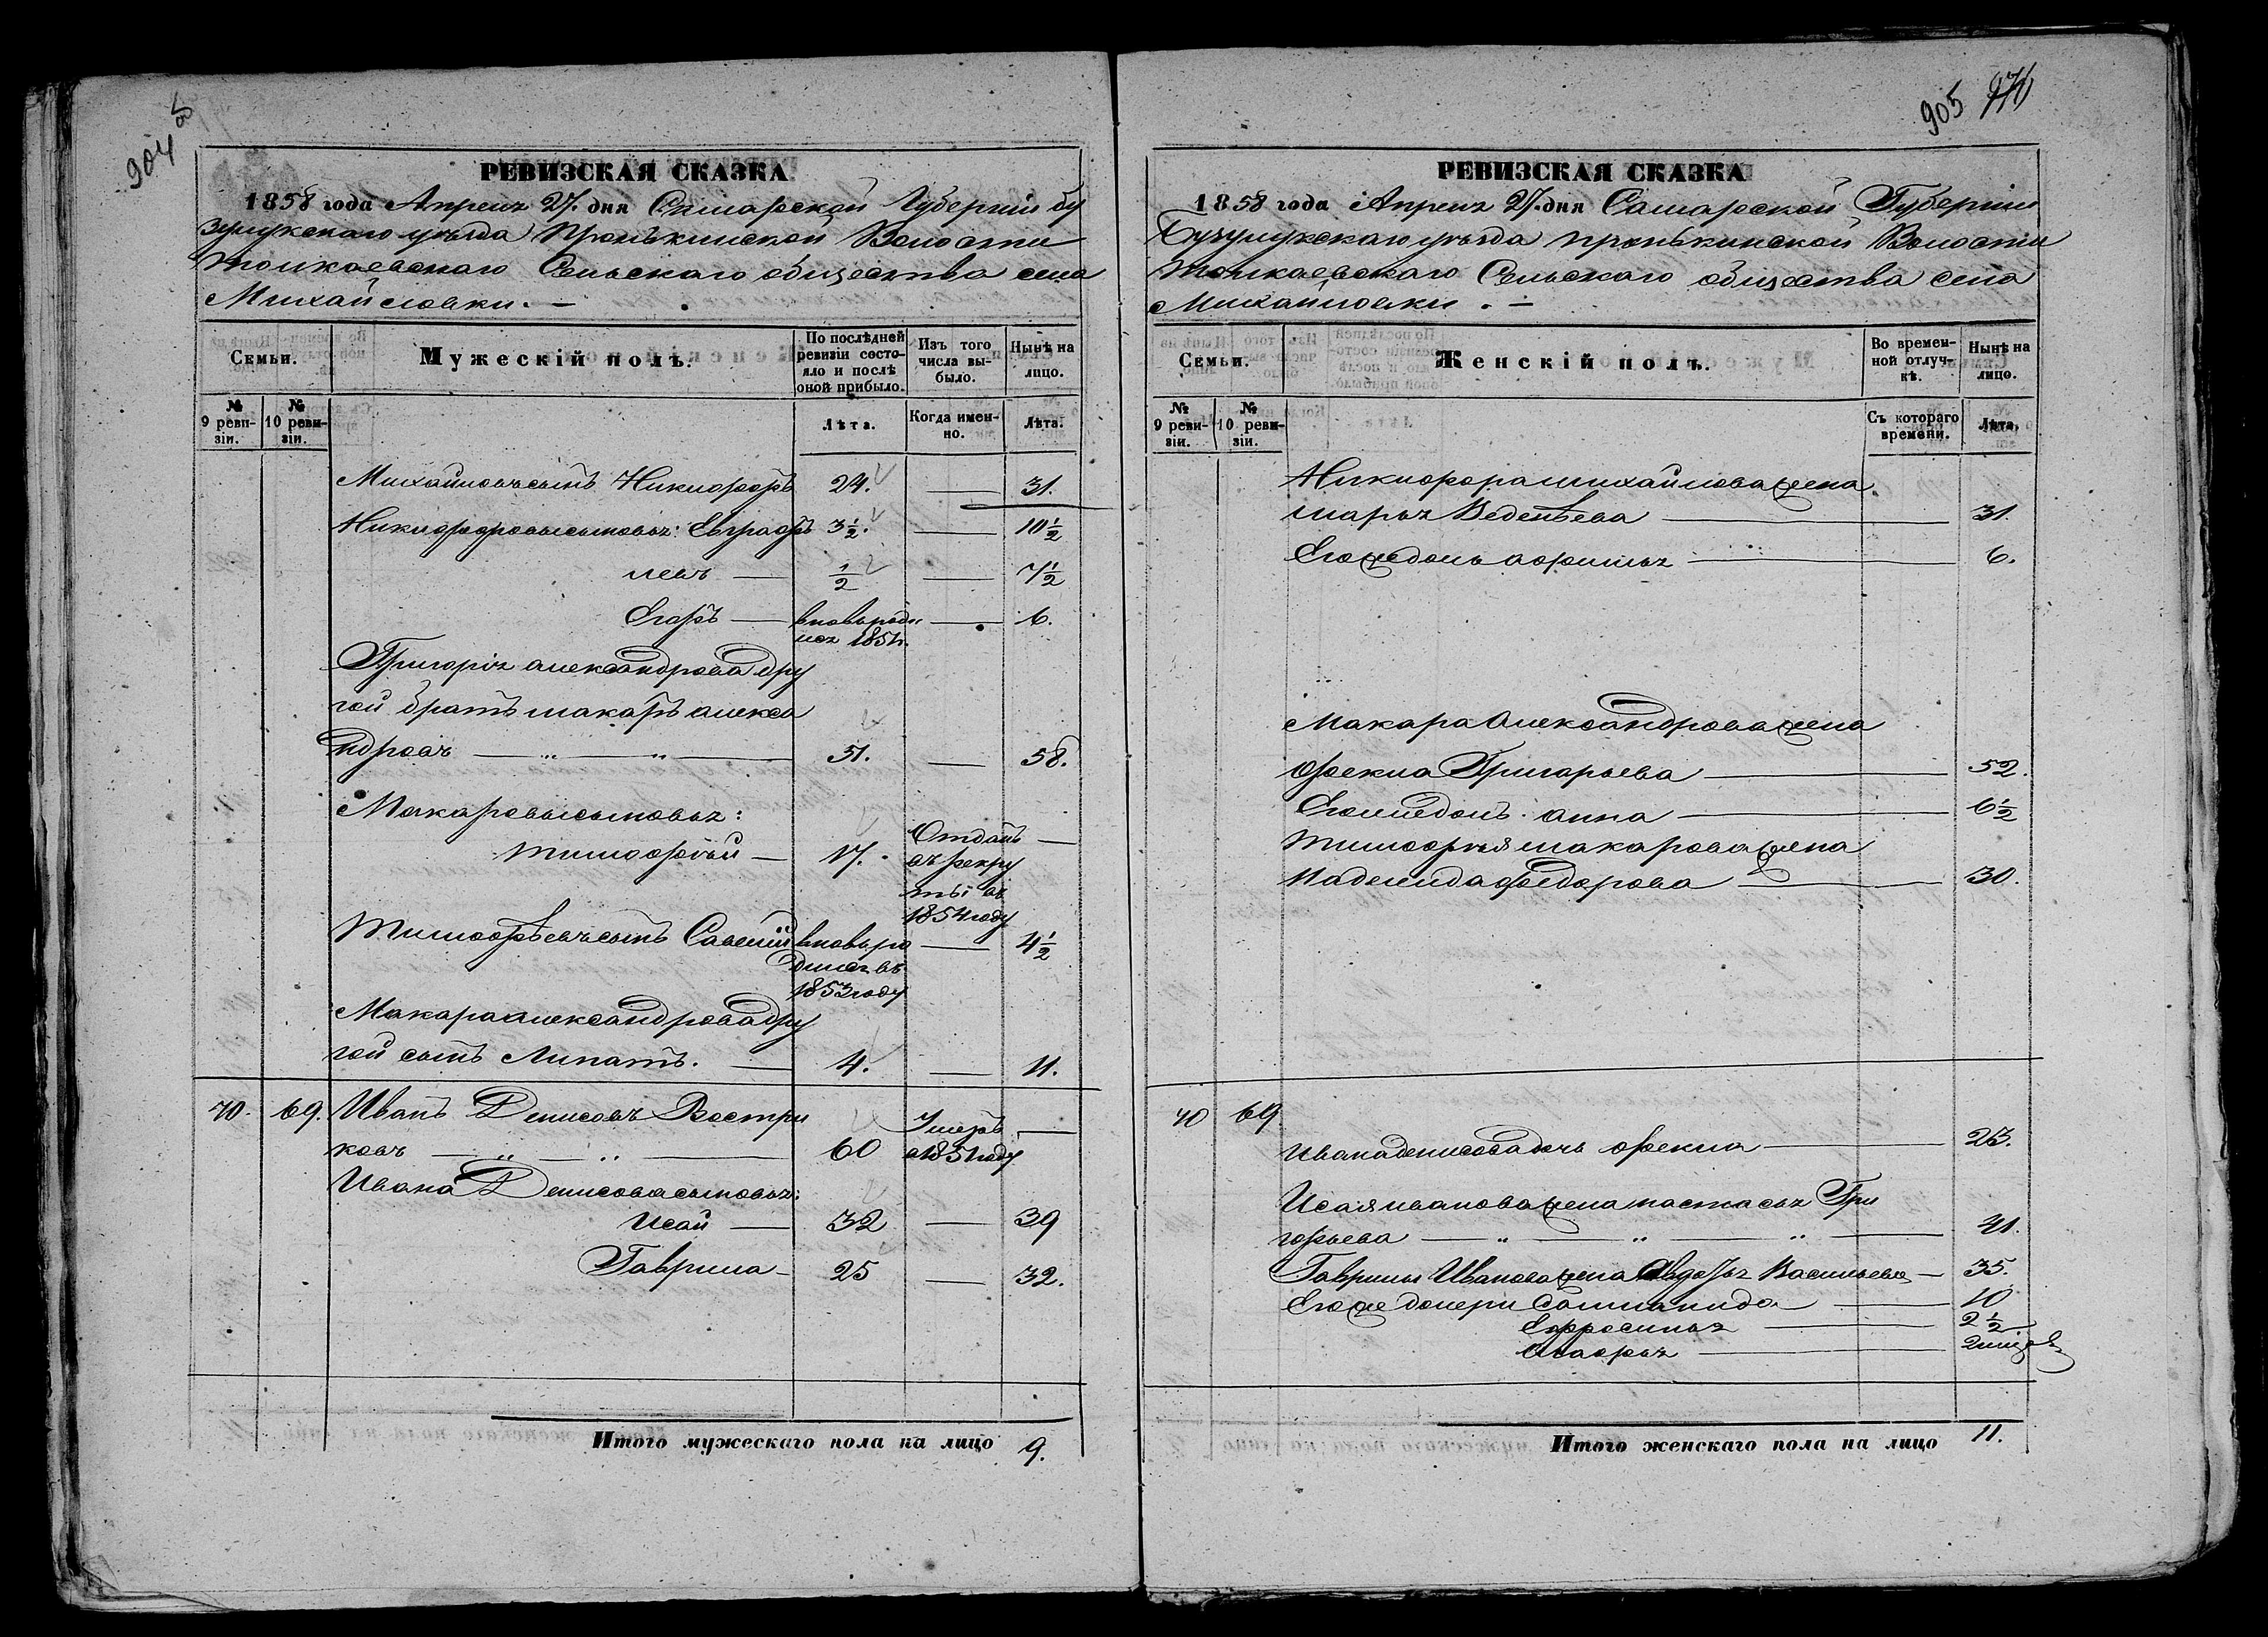 904 об
РЕВИЗСКАЯ СКАЗКА
1858 года Апреля 27. дня Самарской Губернии Бу
зулукскаго уѣзда Пронькинской Волости
Толкаевскаго Сельскаго общества села
Михайловки. —
Семьи.
Мужескій полъ.
По послѣдней ревизіи состояло и послѣ оной прибыло.
Изъ того числа выбыло.
Нынѣ на лицо.
№ 9 ревизіи.
№ 10 ревизіи.
Лѣта.
Когда именно.
Лѣта.
Михайловъ сынъ Никифоръ 24. — 31.
Никифоровы сыновья: Евграфъ 3½. — 10½
левъ — ½ — 7½
Егоръ — вновь роди — 6.
лся 1851г.
Григорія александрова дру
гой братъ макаръ алекса
ндровъ — „ — „ — 51. — 58.
Макаровы сыновья:
тимофѣй — 17. Отданъ —
въ рекру
ты въ
1854 году
Тимофѣевъ сынъ Савелій вновь ро — 4½
дился въ
1853 году
Макара александрова дру
гой сынъ Липатъ. — 4. — 11.
70. 69. Иванъ Денисовъ Востри Умеръ —
ковъ — „ — „ — 60 в 1851 году
Ивана Денисова сыновья:
Исай — 32 — 39
Гаврила — 25 — 32.
Итого мужескаго пола на лицо 9.
905
РЕВИЗСКАЯ СКАЗКА
1858 года Апреля 27. дня Самарской Губернии
Бузулукскаго уѣзда пронькинской Волости
Толкаевскаго Сельскаго общества села
Михайловки. —
Семьи.
Женскій полъ.
Во временной отлучкѣ.
Нынѣ на лицо.
№ 9 ревизіи.
№ 10 ревизіи.
Съ котораго времени.
Лѣта.
Никифора михайлова жена
марья Веденѣева — 31.
Егоже дочь афимья — 6.
Макара Александрова жена
фекла Григорьева — 52.
Егоже дочь. анна — 6½
Тимофѣя макарова жена
надежда федорова — 30.
70 69
Ивана денисова дочь фекла — 23.
Исая иванова жена настасья Гри
горьева — „ — „ — „ — 41.
Гаврилы Иванова жена Авдотья Васильева — 35.
Егоже дочери Соломанида — 10
Ефросинья — 2½
Агафья — 2 месяцов
Итого женскаго пола на лицо 11.